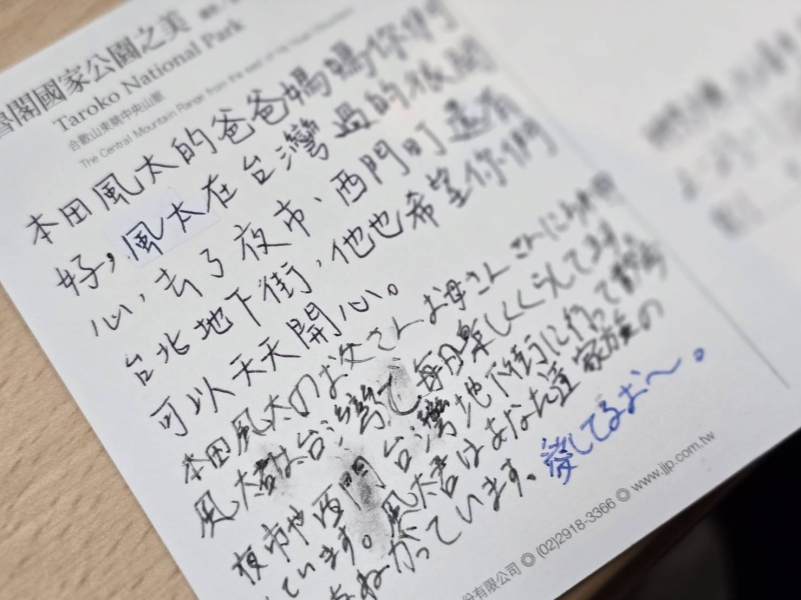 閣國家公園之美
Taroko National Park
合歡山東曉中央山脈
The Central Mountain Range from the east of
本田風太的爸爸媽媽你們
好,風太在台灣過的很開
心,去了夜市、西門町還有
台北地下街,他也希望你們
可以天天開心。
本田風太のお父さんお母さん こんにちは
風太君は台湾で毎日楽しくくらしてます。
夜市や西門 台湾地下街に行って
ています。風太君はあなた達家族の
ねがっています。愛してるお〜。
份有限公司 ◎ (02)2918-3366 ◎ www.jjp.com.tw